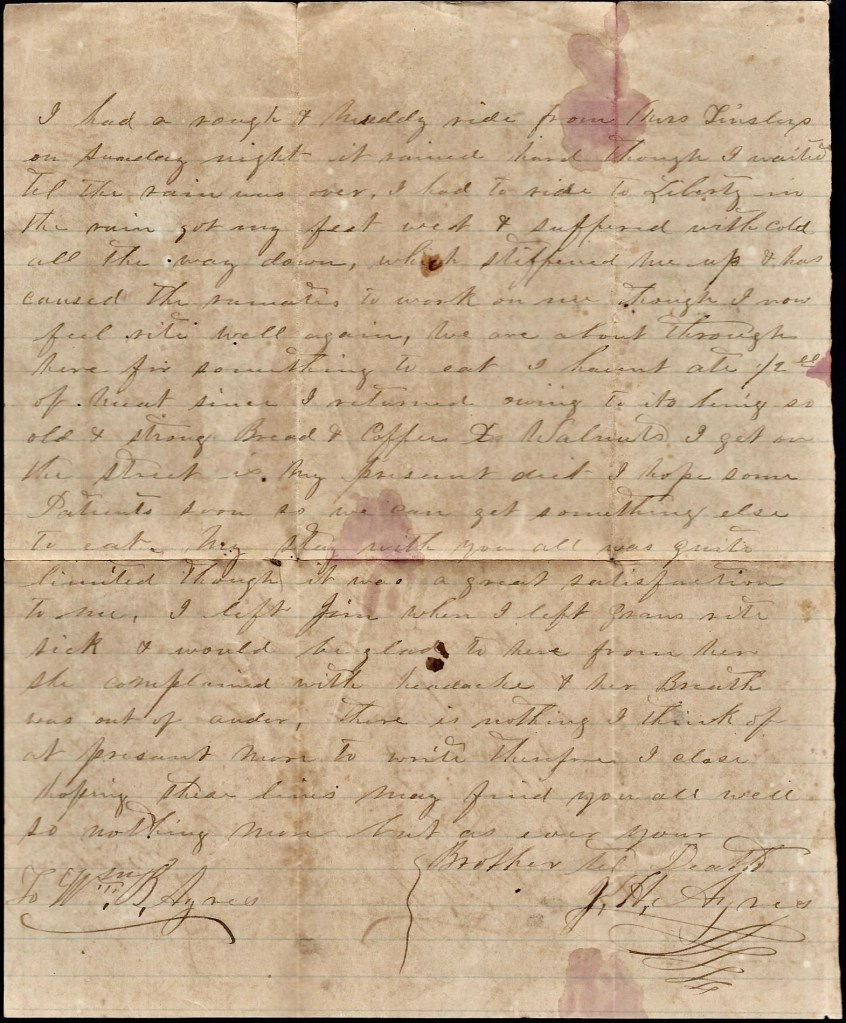 I had a rough & Muddy ride from Mrs Tinsleys
on Sunday night it rained hard though I waited
til the rain was over, I had to ride to Liberty in
the rain got my feet wet & suffered with cold
all the way down, which stiffened me up & has
caused the rumates to work on me though I now
feel rite well again, We are about through
here for something to eat I havent ate 1/2
of Meat since I returned owing to its being so
old & strong Bread & Coffee & Walnuts I get on
the street is My present diet I hope some
Patients soon so we can get something else
to eat. My stay with you all was quite
limited though it was a great satisfaction
to me, I left Jim when I left rite
sick & would be glad to here from her
she complained with headache & her Breath
was out of auder, There is nothing I think of
at present More to write Therefore I close
hoping these lines may find you all well
so nothing More but as ever your
Brother til Death
To Wm. B. Ayres
J. H. Ayres